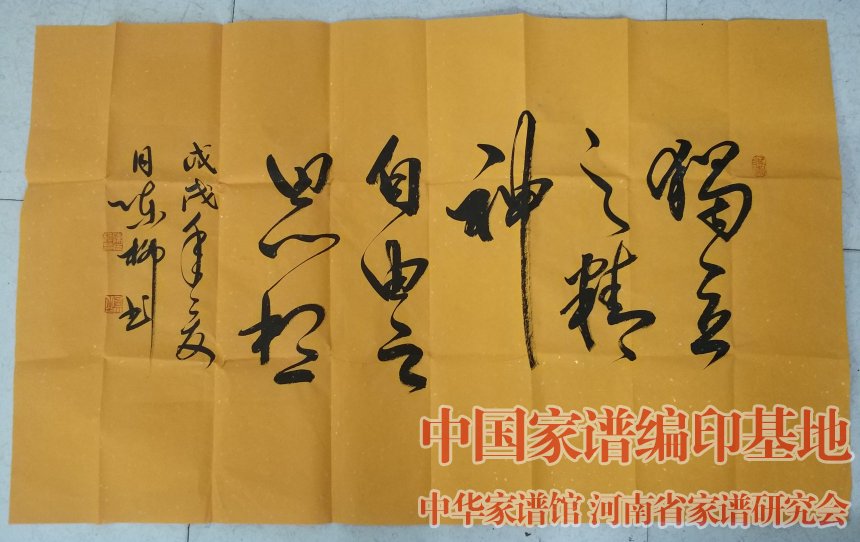 獨立
之精
神
自由之
思想
戊戌年夏
月
柳書
中国家谱编印基地
中华家谱馆 河南省家谱研究会